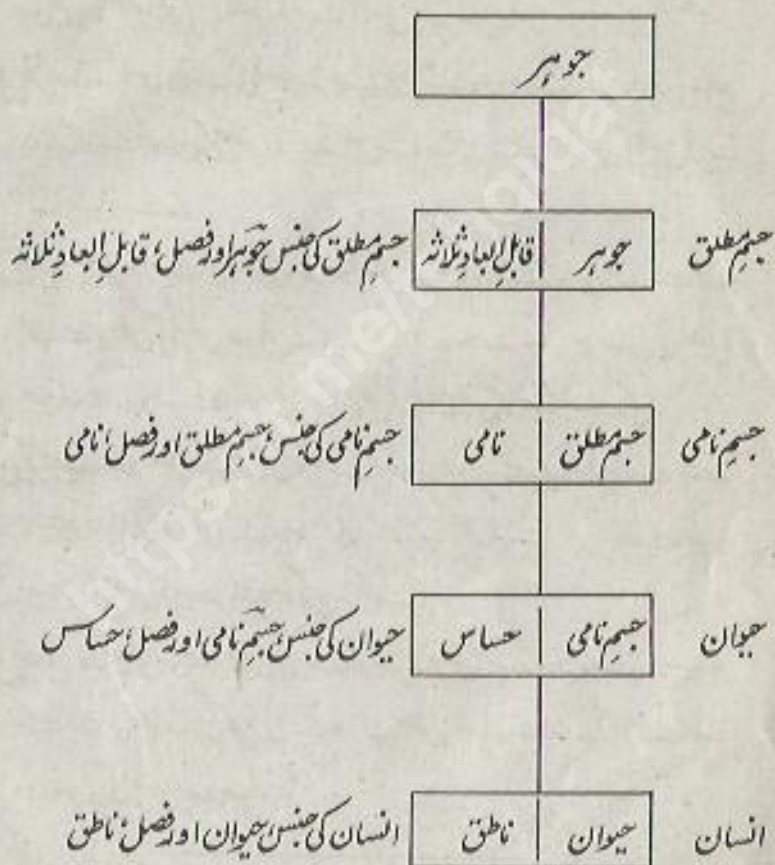 جوہر
جسمِ مطلق جوہر قابلِ ابعادِ ثلاثہ جسمِ مطلق کی جنس، جوہر اور فصل، قابلِ ابعادِ ثلاثہ
جسمِ نامی جسمِ مطلق نامی جسمِ نامی کی جنس، جسمِ مطلق اور فصل، نامی
حیوان جسمِ نامی حساس حیوان کی جنس، جسمِ نامی اور فصل، حساس
انسان حیوان ناطق انسان کی جنس، حیوان اور فصل، ناطق